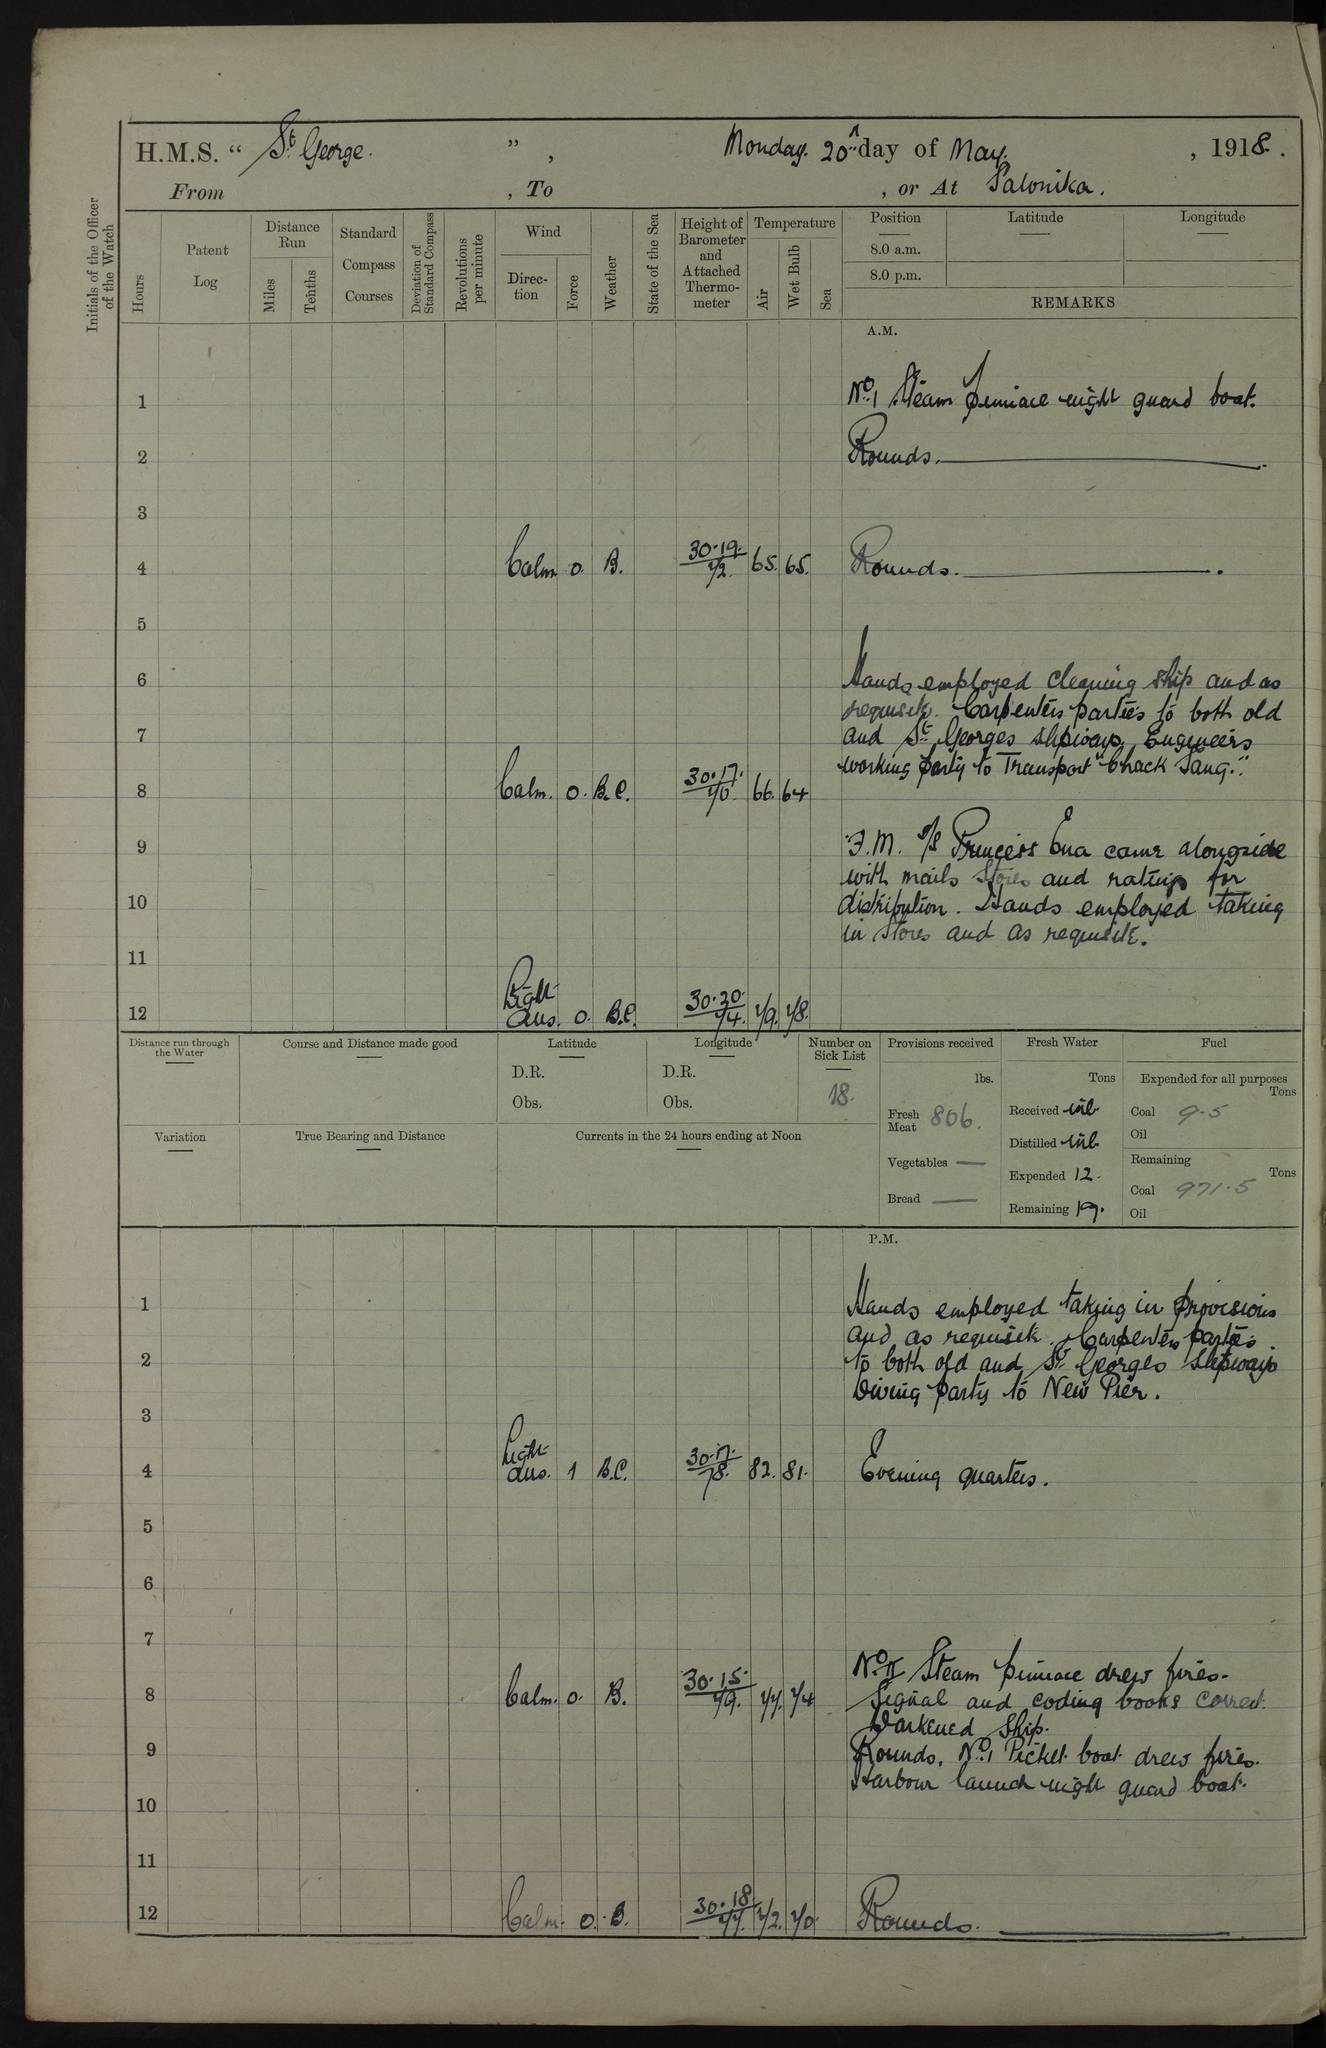 H.M.S. " St George. ", Monday. 20th day of May. , 1918.
From , To , or At Salonika.
Initials of the Officer of the Watch
Hours
Patent Log
Distance Run
Miles
Tenths
Standard Compass Courses
Deviation of Standard Compass
Revolutions per minute
Wind
Direction
Force
Weather
State of the Sea
Height of Barometer and Attached Thermometer
Temperature
Air
Wet Bulb
Sea
Position Latitude Longitude
8.0 a.m.
8.0 p.m.
REMARKS
A.M.
1 No. 1 Steam pinnace night guard boat.
2 Rounds.
3
4 Calm 0. B. 30.19. 72. 65. 65. Rounds.
5
6 Hands employed cleaning ship and as
requisite. Carpenters parties to both old
7 and St. Georges slipways. Engineers
working party to Transport "Chack Sang."
8 Calm. 0. B.C. 30.17. 70. 66. 64
9 F.M. S/S Princess Ena came alongside
with mails stores and ratings for
10 distribution. Hands employed taking
in stores and as requisite.
11
12 Light airs. 0. B.C. 30.20. 74. 79. 78.
Distance run through the Water
Course and Distance made good
Latitude
D.R.
Obs.
Longitude
D.R.
Obs.
Number on Sick List
18.
Provisions received
lbs.
Fresh Meat 806.
Vegetables —
Bread —
Fresh Water
Tons
Received nil.
Distilled nil.
Expended 12.
Remaining 19.
Fuel
Expended for all purposes
Tons
Coal 9.5
Oil
Remaining
Tons
Coal 971.5
Oil
Variation
True Bearing and Distance
Currents in the 24 hours ending at Noon
P.M.
1 Hands employed taking in provisions
and as requisite. Carpenters parties
2 to both old and St Georges slipways
Diving party to New Pier.
3
4 Light airs. 1 B.C. 30.17. 78. 82. 81. Evening quarters.
5
6
7
No. II Steam pinnace drew fires.
8 Calm. 0. B. 30.15. 79. 77. 74 Signal and coding books correct.
Darkened ship.
9 Rounds. No. 1 Picket boat drew fires.
Harbour launch night guard boat.
10
11
12 Calm. 0. B. 30.18. 77. 72. 70. Rounds.